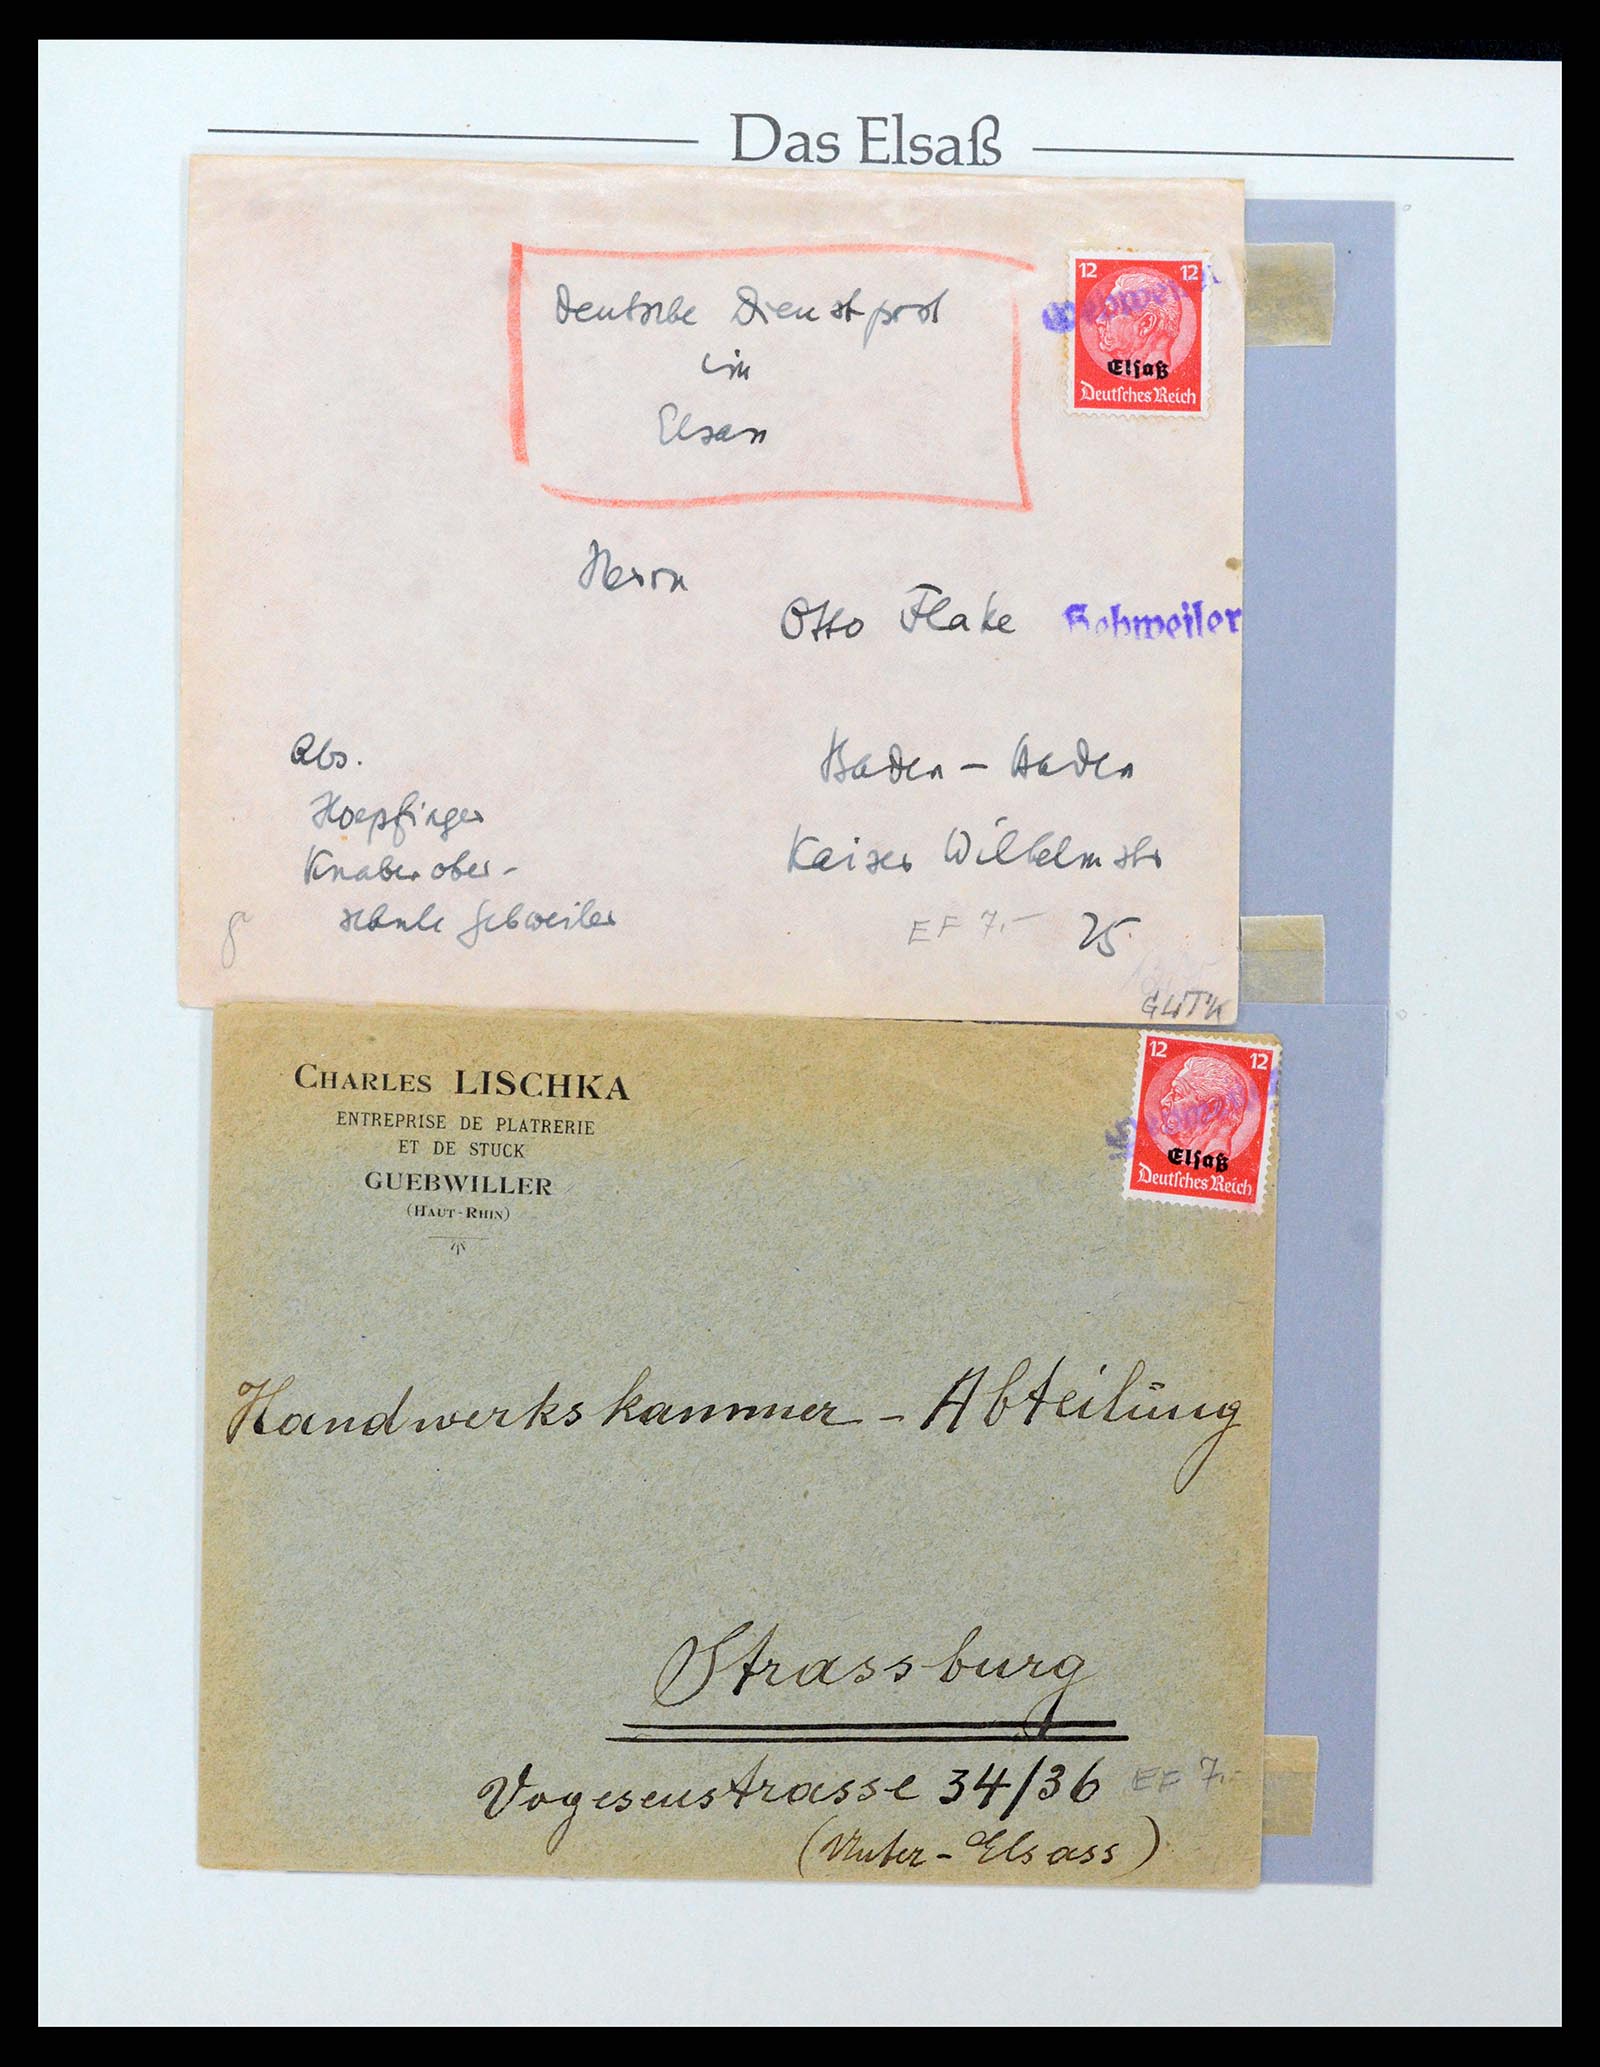 Das Elsaß
Deutsche Dienstpost
im
Elsass
12 12
Elsaß
Deutsches Reich
Herrn
Otto Flake
Gebweiler
Abs.
Hoepfinger
Knabenober-
schule Gebweiler
Baden-Baden
Kaiser Wilhelmstr
EF 7.- 25
CHARLES LISCHKA
ENTREPRISE DE PLATRERIE
ET DE STUCK
GUEBWILLER
(HAUT-RHIN)
12 12
Elsaß
Deutsches Reich
Handwerkskammer - Abteilung
Strassburg
Vogesenstrasse 34/36 EF 7.-
(Unter-Elsass)